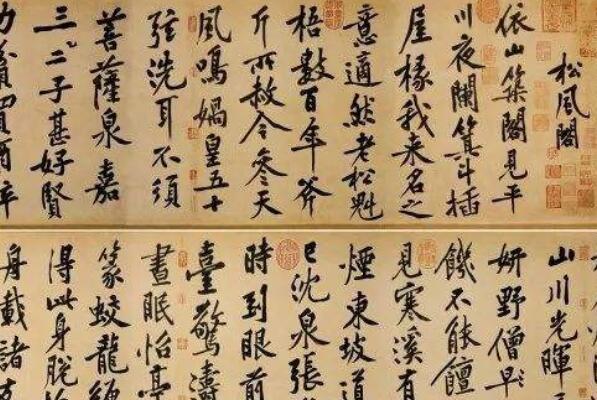 松風閣
依山築閣見平
川夜闌箕斗插
屋椽我來名之
意適然老松魁
梧數百年斧
斤所赦今參天
風鳴媧皇五十
弦洗耳不須
菩薩泉嘉
三二子甚好賢
力貧買酒醉
山川光暉
妍野僧早
饑不能饘
見寒溪有
煙東坡道
已沈泉張
時到眼前
臺驚濤
晝眠怡亭
篆蛟龍纏
得此身脫
舟載諸友